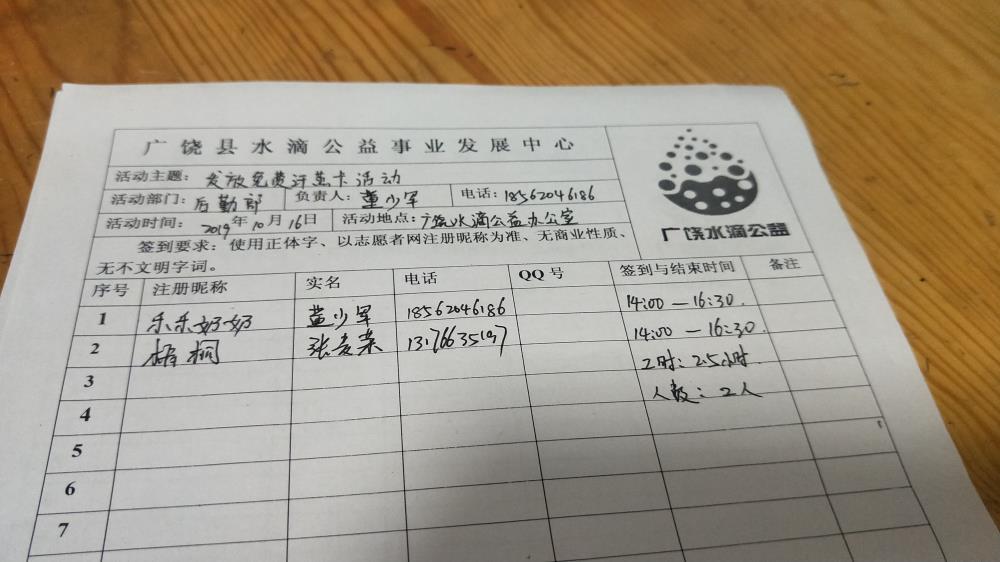 广饶县水滴公益事业发展中心
活动主题：发放免费汗蒸卡活动
活动部门：后勤部 负责人：董少军 电话：18562046186
活动时间：2019年10月16日 活动地点：广饶水滴公益办公室
签到要求：使用正体字、以志愿者网注册昵称为准、无商业性质、
无不文明字词。
广饶水滴公益
序号 注册昵称 实名 电话 QQ号 签到与结束时间 备注
1 乐乐奶奶 董少军 18562046186 14:00－16:30.
2 梧桐 13176635197 14:00－16:30.
3 工时：2.5小时.
4 人数：2人
5
6
7